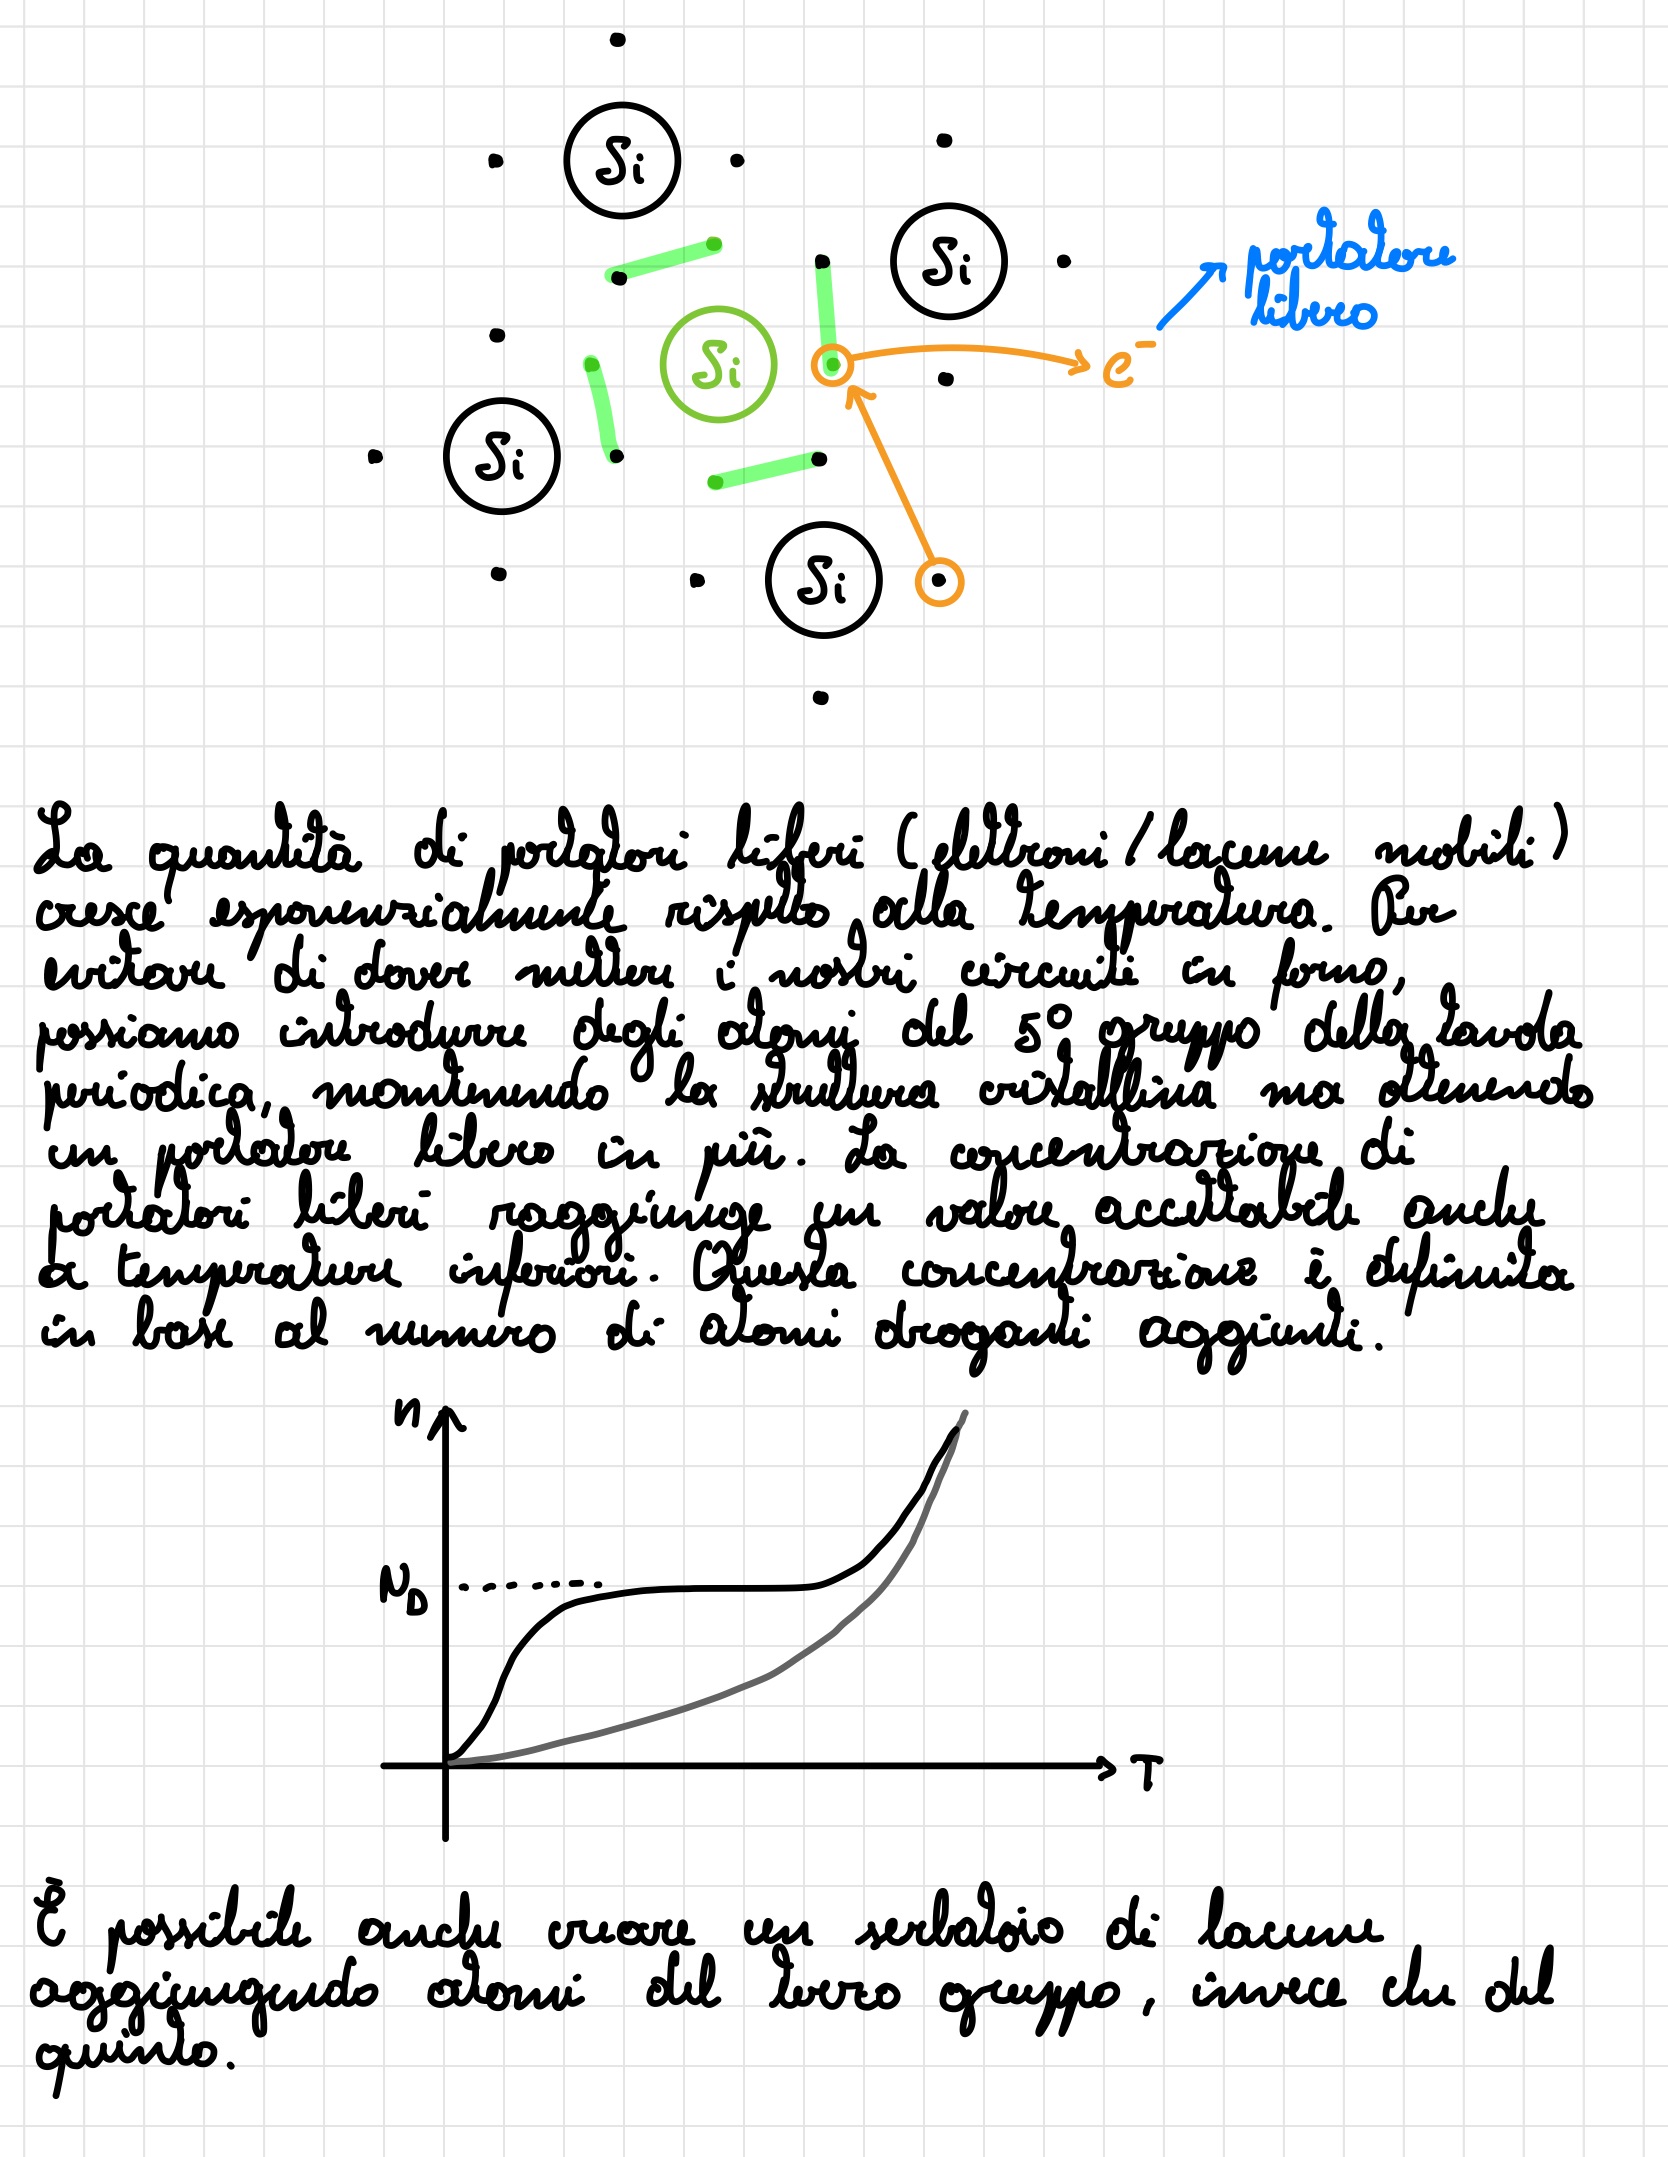 Si
Si
portatore
libero
Si
e⁻
Si
Si
La quantità di portatori liberi (elettroni/lacune mobili)
cresce esponenzialmente rispetto alla temperatura. Per
evitare di dover mettere i nostri circuiti in forno,
possiamo introdurre degli atomi del 5° gruppo della tavola
periodica, mantenendo la struttura cristallina ma ottenendo
un portatore libero in più. La concentrazione di
portatori liberi raggiunge un valore accettabile anche
a temperature inferiori. Questa concentrazione è definita
in base al numero di atomi droganti aggiunti.
n
N_D
T
È possibile anche creare un serbatoio di lacune
aggiungendo atomi del terzo gruppo, invece che del
quinto.